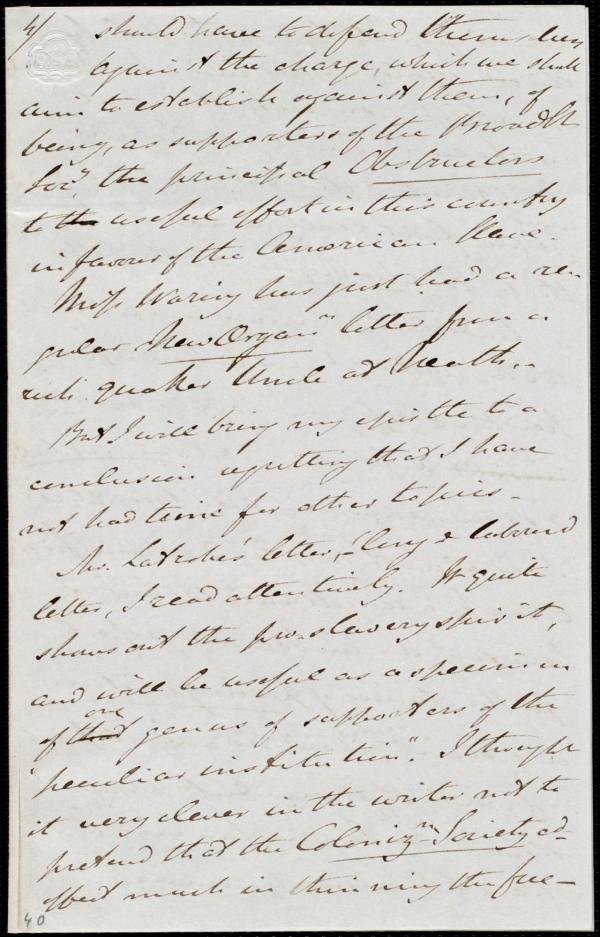 4/ should have to defend themselves
against the charge, which we shall
aim to establish against them, of
being, as supporters of the Broad St
Socy, the principal Obstructors
to th useful effort in this country
in favour of the American Slave.
Miss Waring has just had a re-
gular New Organn letter from a
rich quaker Uncle at Neath.
But I will bring my epistle to a
conclusion regretting that I have
not had time for other topics.
Mr. Latrobe's letter, long & laboured
letter, I read attentively. It quite
shows out the pro-slavery spirit,
and will be useful as a specimen
of that one genus of supporters of the
"peculiar institution". I thought
it very clever in the writer not to
pretend that the Colonizn Society ed-
effect much in thinning the free-
40